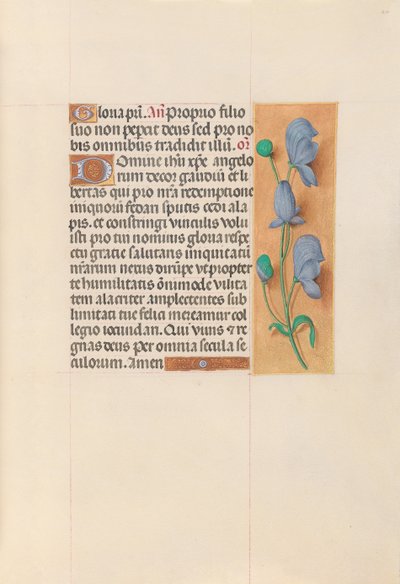 Gloria pr̄i. An̄ Proprio filio
suo non peperc̄it deus sed pro no
bis omnibus tradidit illū. or̄
Domine ihū xpe angelo
rum decor gaudiū et li
bertas qui pro nr̄a redemptione
iniquorū fedari sputis cedi ala
pis. et constringi vinculis volu
isti pro tui nominis gloria respe
ctu gracie salutaris iniquitatū
nr̄arum nexus dirūpe vt propter
te humilitatis ōnimode vilita
tem alacriter amplectentes sub
limitati tue felici mereamur col
legio iocundari. Qui viuis et re
gnas deus per omnia secula se
culorum. Amen